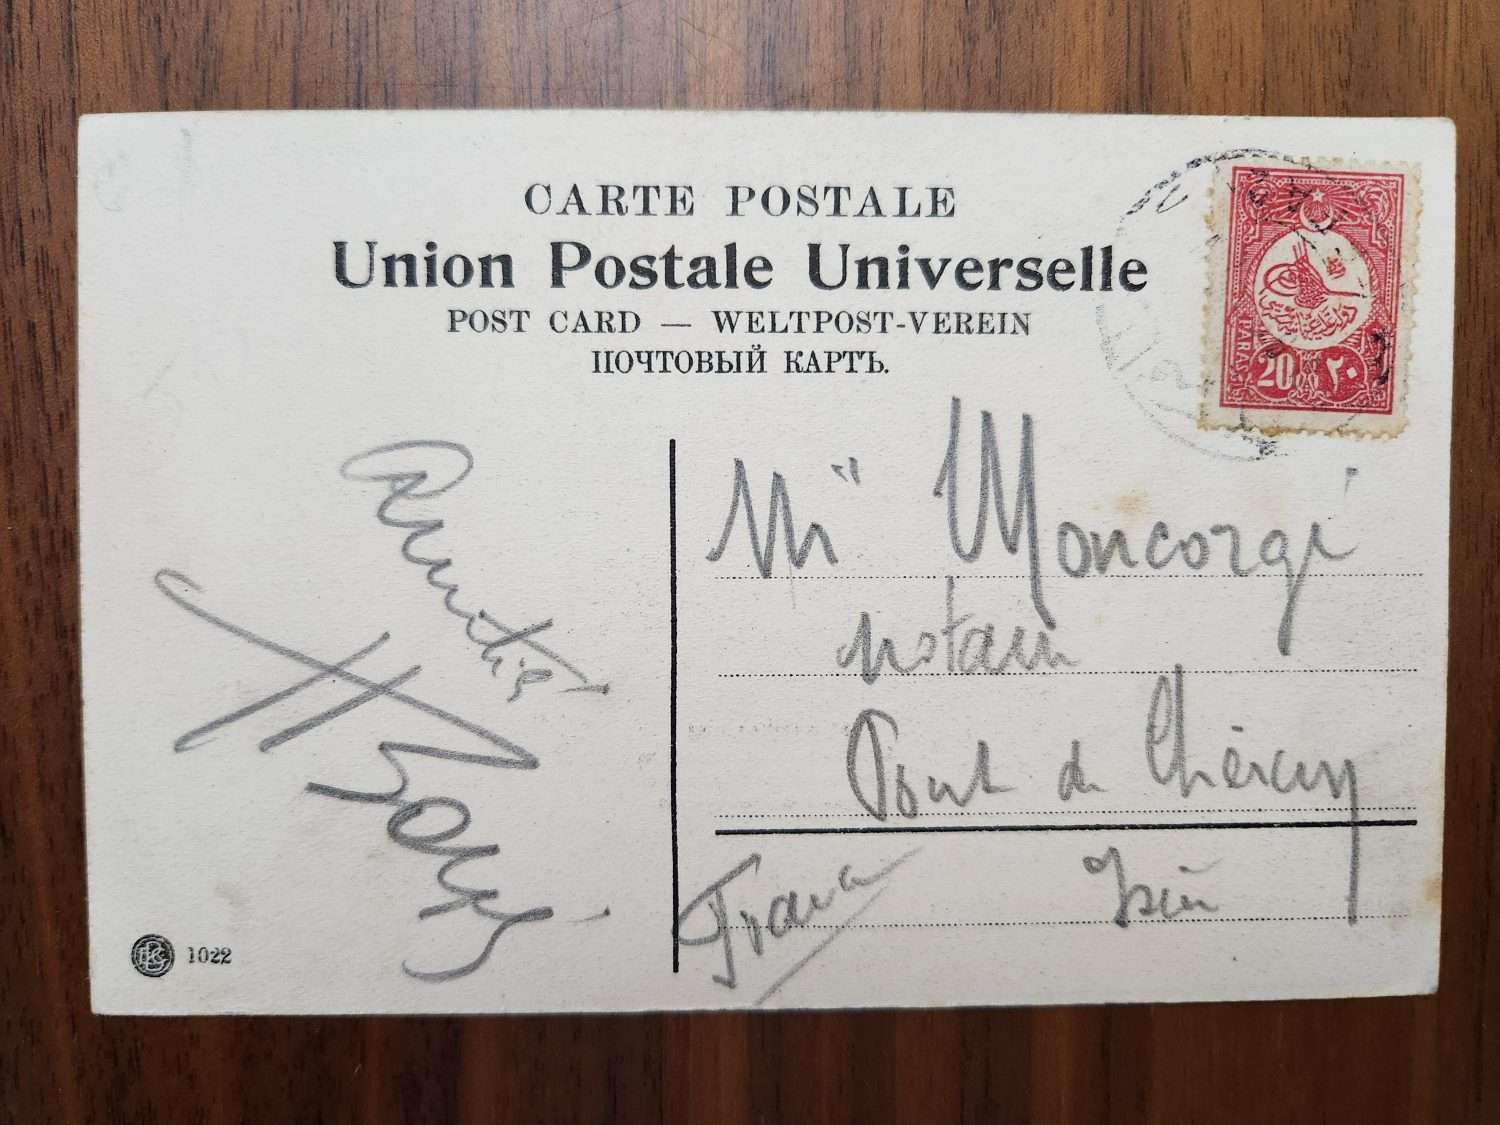 CARTE POSTALE
Union Postale Universelle
POST CARD — WELTPOST-VEREIN
ПОЧТОВЫЙ КАРТЪ.
PARAS
20 ٢٠
Amitié
Mr Moncorgé
notaire
Pont de Chéruy
Isère
France
1022